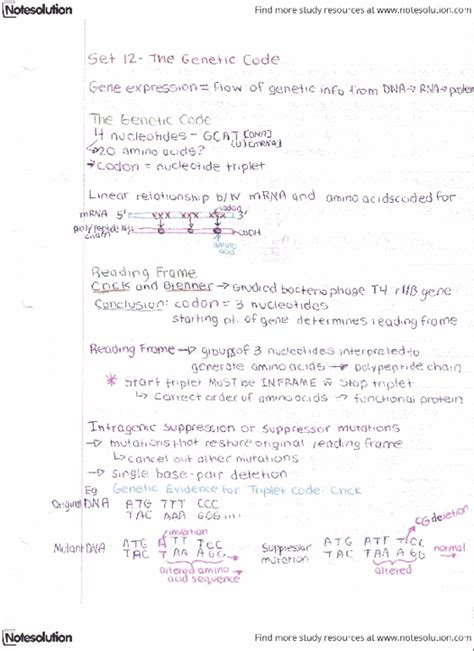 Notesolution
Find more study resources at www.notesolution.com
Set 12- The Genetic Code
Gene expression = flow of genetic info from DNA→ RNA→ protein
The Genetic Code
4 nucleotides - GCAT [DNA]
(U) [mRNA]
20 amino acids?
→ codon = nucleotide triplet
Linear relationship b/w mRNA and amino acids coded for
codon
mRNA 5' xxx xxx xxx 3'
polypeptide N
chain
COOH
amino
acid
Reading Frame
Crick and Brenner → studied bacteriophage T4 rIIB gene
Conclusion: codon = 3 nucleotides
starting pt. of gene determines reading frame
Reading Frame → groups of 3 nucleotides interpreted to
generate amino acids → polypeptide chain
* Start triplet MUST BE INFRAME w stop triplet
↳ correct order of amino acids → functional protein
Intragenic suppression or suppressor mutations
→ mutations that restore original reading frame
↳ cancel out other mutations
→ single base-pair deletion
Eg Genetic Evidence for Triplet Code: Crick
Original DNA ATG TTT CCC
TAC AAA GGG....
insertion
CG deletion
Mutant DNA ATG ATT TCC
TAC TAA AGG...
altered amino
acid sequence
Suppressor
mutation
ATG ATT TCC
TAC TAA A GG
normal
altered
Notesolution
Find more study resources at www.notesolution.com